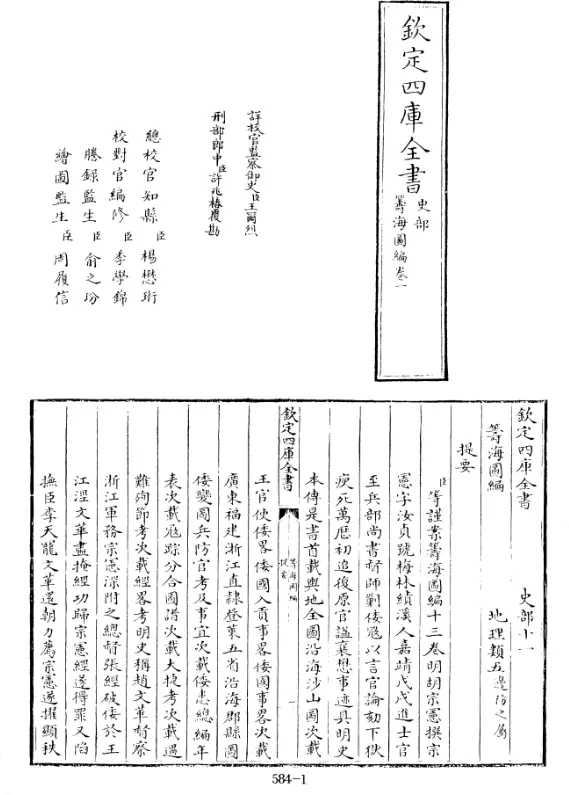 欽定四庫全書 史部
籌海圖編卷一
詳校官監察御史臣王爾烈
刑部郎中臣許兆椿覆勘
總校官知縣臣楊懋珩
校對官編修臣季學錦
謄錄監生臣俞之玢
繪圖監生臣周履信
欽定四庫全書 史部十一
籌海圖編 地理類五邊防之屬
提要
臣等謹案籌海圖編十三卷明胡宗憲撰宗
憲字汝貞號梅林績溪人嘉靖戊戌進士官
至兵部尚書督師剿倭寇以言官論劾下獄
庾死萬厯初追復原官諡襄懋事迹具明史
本傳是書首載輿地全圖沿海沙山圖次載
欽定四庫全書
籌海圖編
提要
一
王官使倭畧倭國入貢事畧倭國事畧次載
廣東福建浙江直隸登萊五省沿海郡縣圖
倭變圖兵防官考及事宜次載倭患總編年
表次載寇踪分合圖譜次載大捷考次載遇
難殉節考次載經畧考明史稱趙文華督察
浙江軍務宗憲深附之總督張經破倭於王
江涇文華盡掩經功歸宗憲經遂得罪又陷
撫臣李天寵文華還朝力薦宗憲遂擢顯秩
584-1